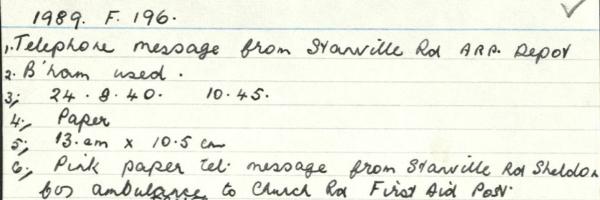 1989. F. 196.
1. Telephone message from Starville Rd A.R.P. Depot
2. B'ham used.
3; 24.8.40. 10.45.
4; Paper
5; 13.cm x 10.5 cm
6; Pink paper tel. message from Starville Rd Sheldon
for ambulance to Church Rd First Aid Post.